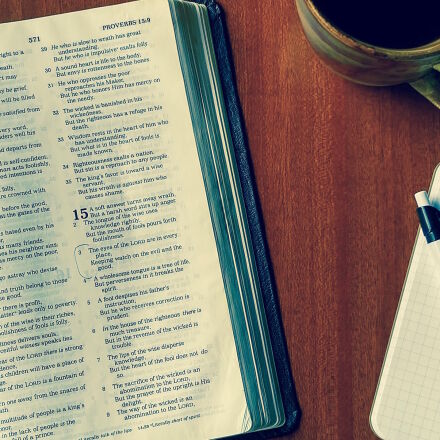 571
PROVERBS 15:9
right to a
eath.
t may
y be grief.
will be filled
satisfied from
very word,
ders well his
nd departs from
is self-confident.
man acts foolishly,
ed intentions is
folly,
re crowned with
before the good,
at the gates of the
ated even by his
many friends.
es his neighbor sins;
s mercy on the poor,
go astray who devise
nd truth belong to those
e good.
there is profit,
leads only to poverty.
n of the wise is their riches,
foolishness of fools is folly.
witness delivers souls,
witness speaks lies
ear of the LORD there is strong
is children will have a place of
of the LORD is a fountain of
n one away from the snares of
multitude of people is a king's
in the lack of people is the
29 He who is slow to wrath has great
understanding,
But he who is impulsive exalts folly.
30 A sound heart is life to the body,
But envy is rottenness to the bones.
31 He who oppresses the poor
reproaches his Maker,
But he who honors Him has mercy on
the needy.
32 The wicked is banished in his
wickedness,
But the righteous has a refuge in his
death.
33 Wisdom rests in the heart of him who
has understanding,
But what is in the heart of fools is
made known.
34 Righteousness exalts a nation,
But sin is a reproach to any people.
35 The king's favor is toward a wise
servant,
But his wrath is against him who
causes shame.
15 A soft answer turns away wrath,
But a harsh word stirs up anger.
2 The tongue of the wise uses
knowledge rightly,
But the mouth of fools pours forth
foolishness.
3 The eyes of the LORD are in every
place,
Keeping watch on the evil and the
good.
4 A wholesome tongue is a tree of life,
But perverseness in it breaks the
spirit.
5 A fool despises his father's
instruction,
But he who receives correction is
prudent.
6 In the house of the righteous there is
much treasure,
But in the revenue of the wicked is
trouble.
7 The lips of the wise disperse
knowledge,
But the heart of the fool does not do
so.
8 The sacrifice of the wicked is an
abomination to the LORD,
But the prayer of the upright is His
delight.
9 The way of the wicked is an
abomination to the LORD,